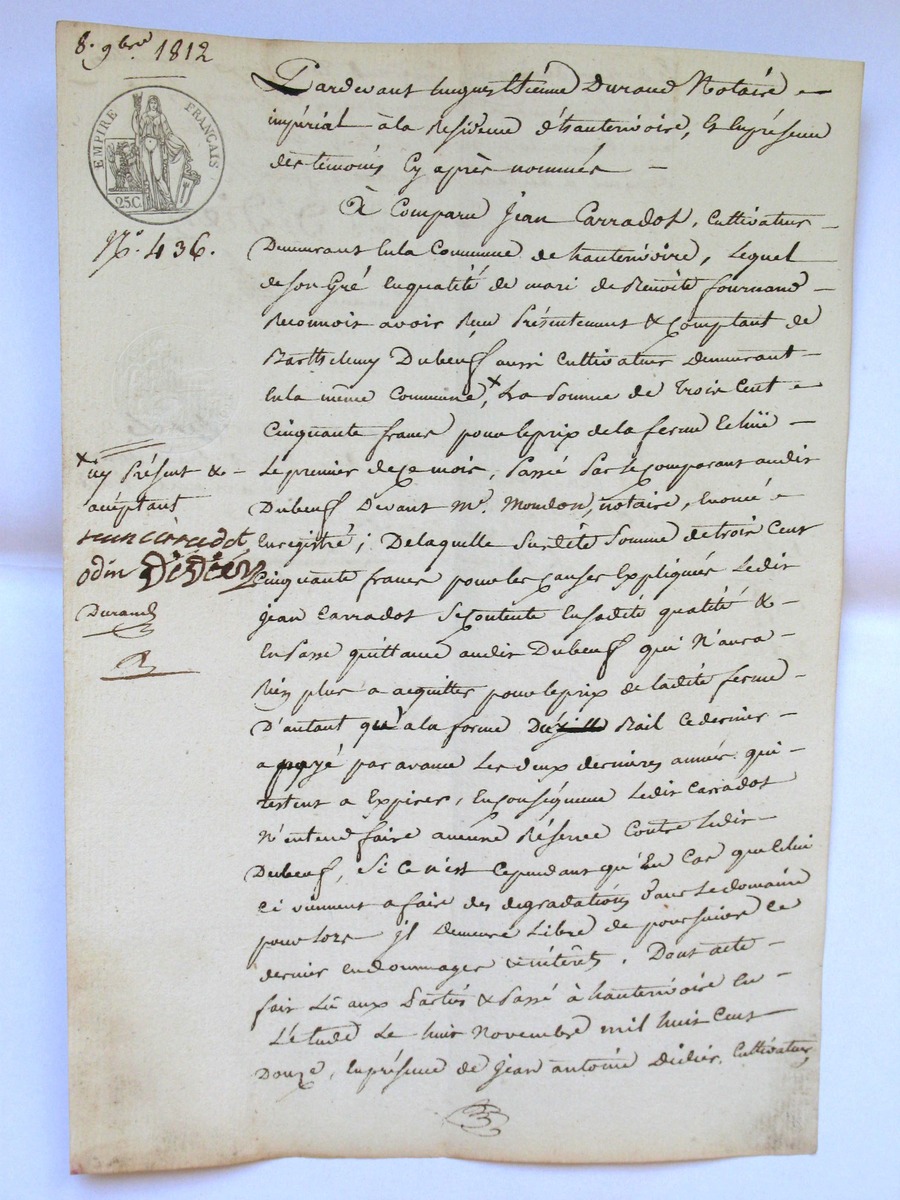 8. 9bre 1812
EMPIRE FRANÇAIS
25C.
N.° 436.
Pardevant hugues Etienne Durand Notaire
impérial à la Residence d'hauterivoire, & En présence
des témoins Cy après nommés —
À Comparu Jean Carradot, Cultivateur
Demeurant En la Commune de hauterivoire, Lequel
de son Gré En qualité de mari de Benoîte fournand
Reconnoit avoir Reçu Présentement & Comptant de
Barthelemy Dubeuf aussi Cultivateur Demeurant
En la même Commune,ˣ La Somme de Trois Cent
Cinquante francs pour le prix de la ferme Echüe
Le premier de ce mois, Passé Par le Comparant audit
Dubeuf Devant Mᵉ. Moudon, notaire, Enoncé
Enregistré; De laquelle Susdite Somme de trois Cent
Cinquante francs pour les Causes Expliquées Ledit
Jean Carradot Se Contente En sadite qualité &
En Passe quittance audit Dubeuf qui N'aura
Rien plus a acquitter pour le prix de ladite ferme
D'autant qu'à la forme Du Bail Ce dernier
a payé par avance Les deux dernieres années qui
restent a Expirer, En Conséquence Ledit Carradot
N'entend faire aucune Réserve Contre Ledit
Dubeuf, Si Ce n'est Cependant qu'En Cas que Celui
ci viennent a faire des degradations dans Le domaine
pour Lors il Demeure Libre de poursuivre Ce
dernier en dommages & intérêts. Dont acte
fait Lû aux Parties & Passé à hauterivoire En
L'etude Le huit Novembre mil huit Cent
Douze, En présence de Jean antoine Didier, Cultivateur,
ˣ Cy Présent &
acceptant
jean carradot
odin Didier
Durand